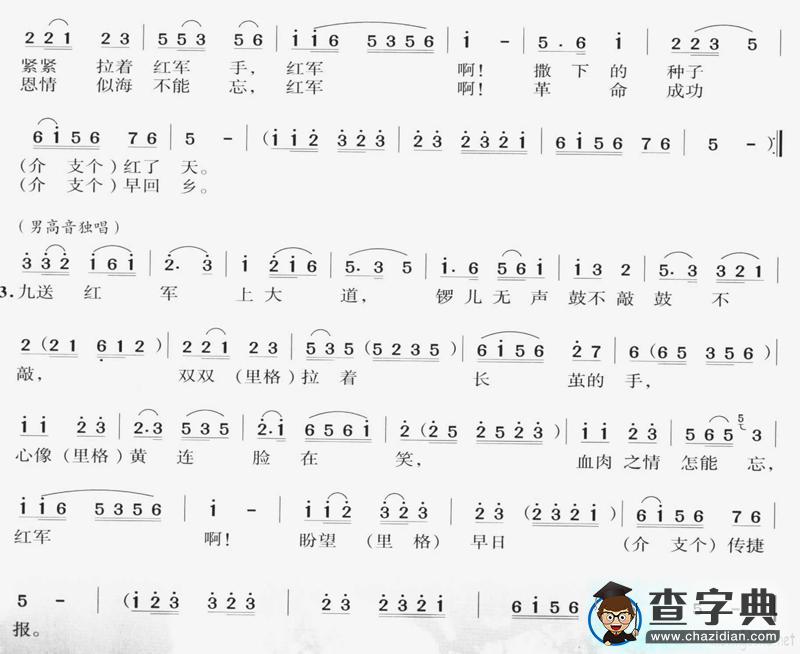 2 2 1 2 3 | 5 5 3 5 6 | i i 6 5 3 5 6 | i - | 5 . 6 i | 2 2 3 5 |
紧紧 拉着 红军 手, 红军 啊! 撒 下 的 种子
恩情 似海 不能 忘, 红军 啊! 革 命 成功
6 i 5 6 7 6 | 5 - | (i i 2 3 2 3 | 2 3 2 3 2 1 | 6 i 5 6 7 6 | 5 - ) :||
(介 支个)红了 天。
(介 支个)早回 乡。
(男高音独唱)
3 3 2 i 6 i | 2 . 3 | i 2 i 6 | 5 . 3 5 | i . 6 5 6 i | i 3 2 | 5 . 3 3 2 1 |
3.九送 红 军 上大 道, 锣儿 无声 鼓不 敲鼓 不
2 (2 1 6 1 2) | 2 2 1 2 3 | 5 3 5 (5 2 3 5) | 6 i 5 6 2 7 | 6 (6 5 3 5 6) |
敲, 双双 (里格)拉 着 长 茧的 手,
i i 2 3 | 2 . 3 5 3 5 | 2 . i 6 5 6 i | 2 (2 5 2 5 2 3) | i i 2 3 | 5 6 5 5 3 |
心像 (里格)黄 连 脸 在 笑, 血肉 之情 怎能 忘,
i i 6 5 3 5 6 | i - | i i 2 3 2 3 | 2 3 (2 3 2 i) | 6 i 5 6 7 6 |
红军 啊! 盼望 (里 格) 早日 (介 支个)传捷
5 - | (i 2 3 3 2 3 | 2 3 2 3 2 i | 6 i 5 6
报。
查字典
www.chazidian.com